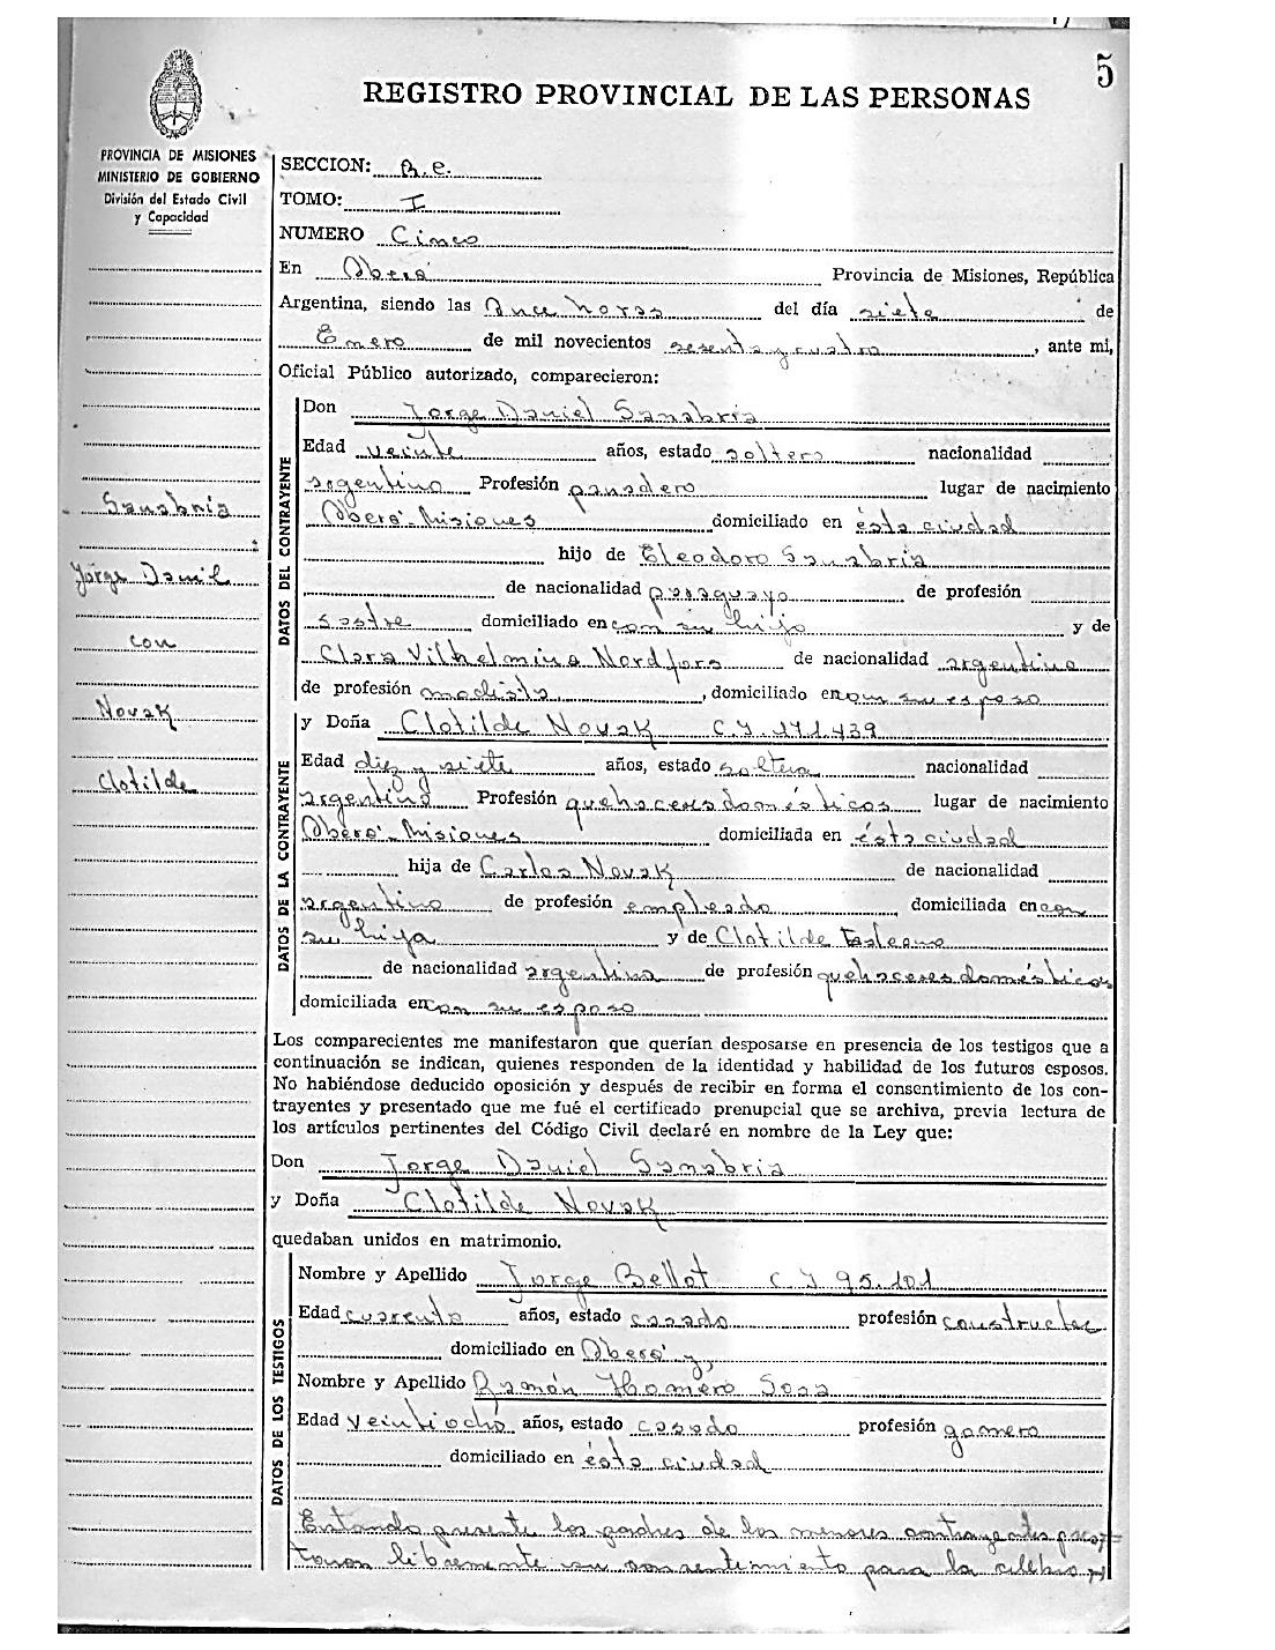 5
REGISTRO PROVINCIAL DE LAS PERSONAS
PROVINCIA DE MISIONES
MINISTERIO DE GOBIERNO
División del Estado Civil
y Capacidad
SECCION:
TOMO: I
NUMERO Cinco
En Oberá Provincia de Misiones, República
Argentina, siendo las Once horas del día siete de
Enero de mil novecientos sesenta y cuatro, ante mi,
Oficial Público autorizado, comparecieron:
Sanabria
Jorge Daniel
con
Novak
Clotilde
DATOS DEL CONTRAYENTE
Don Jorge Daniel Sanabria
Edad veinte años, estado soltero nacionalidad
argentino Profesión panadero lugar de nacimiento
Oberá-Misiones domiciliado en ésta ciudad
hijo de Eleodoro Sanabria
de nacionalidad paraguayo de profesión
sastre domiciliado en con su hijo y de
Clara Vilhelmina Nordfors de nacionalidad argentina
de profesión modista, domiciliado en con su esposo
DATOS DE LA CONTRAYENTE
y Doña Clotilde Novak C.I. 171.439
Edad diez y siete años, estado soltera nacionalidad
argentina Profesión quehaceres domésticos lugar de nacimiento
Oberá-Misiones domiciliada en ésta ciudad
hija de Carlos Novak de nacionalidad
argentino de profesión empleado, domiciliada en con
su hija y de Clotilde
de nacionalidad argentina de profesión quehaceres domésticos
domiciliada en con su esposo
Los comparecientes me manifestaron que querían desposarse en presencia de los testigos que a
continuación se indican, quienes responden de la identidad y habilidad de los futuros esposos.
No habiéndose deducido oposición y después de recibir en forma el consentimiento de los con-
trayentes y presentado que me fué el certificado prenupcial que se archiva, previa lectura de
los artículos pertinentes del Código Civil declaré en nombre de la Ley que:
Don Jorge Daniel Sanabria
y Doña Clotilde Novak
quedaban unidos en matrimonio.
DATOS DE LOS TESTIGOS
Nombre y Apellido Jorge Bellot C I 95.101
Edad cuarenta años, estado casado profesión constructor
domiciliado en Oberá y,
Nombre y Apellido Ramón Homero Sosa
Edad veintiocho años, estado casado profesión gomero
domiciliado en ésta ciudad
Estando presente los padres de los menores contrayentes
libremente su consentimiento para la